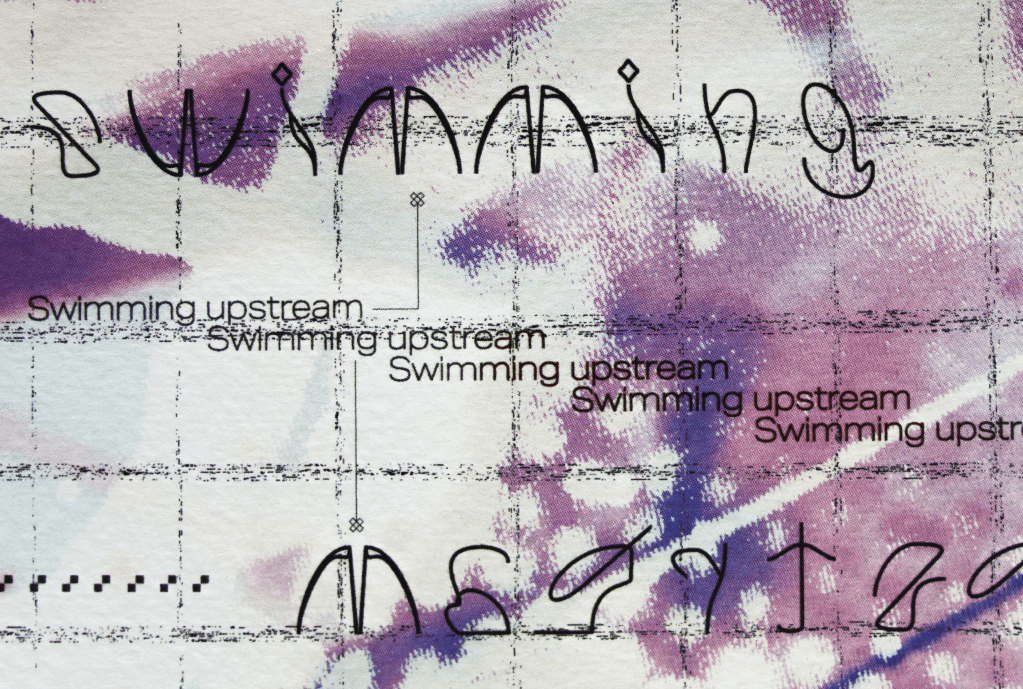 swimming
Swimming upstream
Swimming upstream
Swimming upstream
Swimming upstream
Swimming upstr